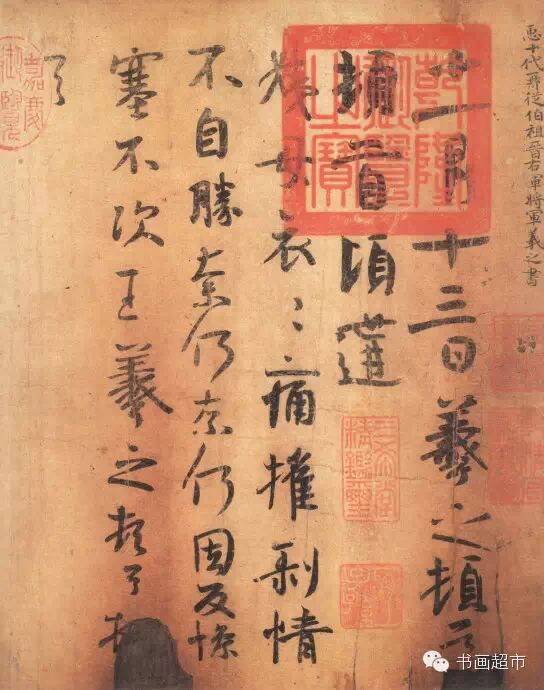 十代再從伯祖晉右軍將軍羲之書
乾隆
御覽
之寶
十一月十三日羲之頓首
頓首頃遘
姨母哀〻痛摧剝情
不自勝奈何奈何因反慘
塞不次王羲之頓首頓
首
嘉慶
御覽
三希堂
精鑑璽
宜子孫
书画超市